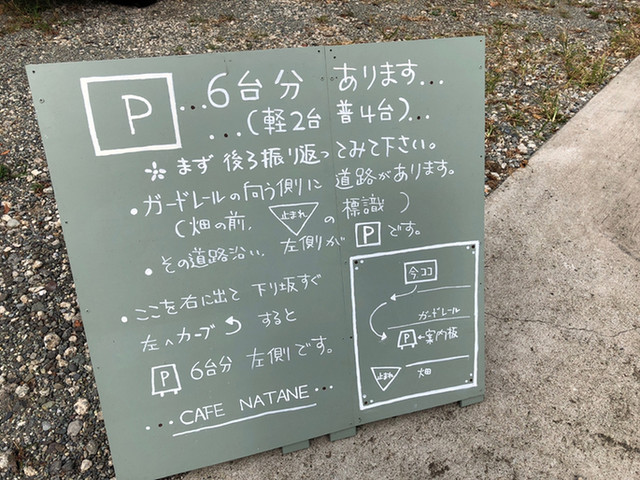 P ...6台分 あります...
...(軽2台 普4台)...
※まず 後ろ振り返ってみて下さい。
・ガードレールの向う側に 道路があります。
(畑の前、止まれの 標識)
・その道路沿い、左側が P です。
・ここを右に出て 下り坂すぐ
左へカーブ すると
P 6台分 左側です。
...CAFE NATANE...
今ココ
ガードレール
P ←案内板
止まれ 畑